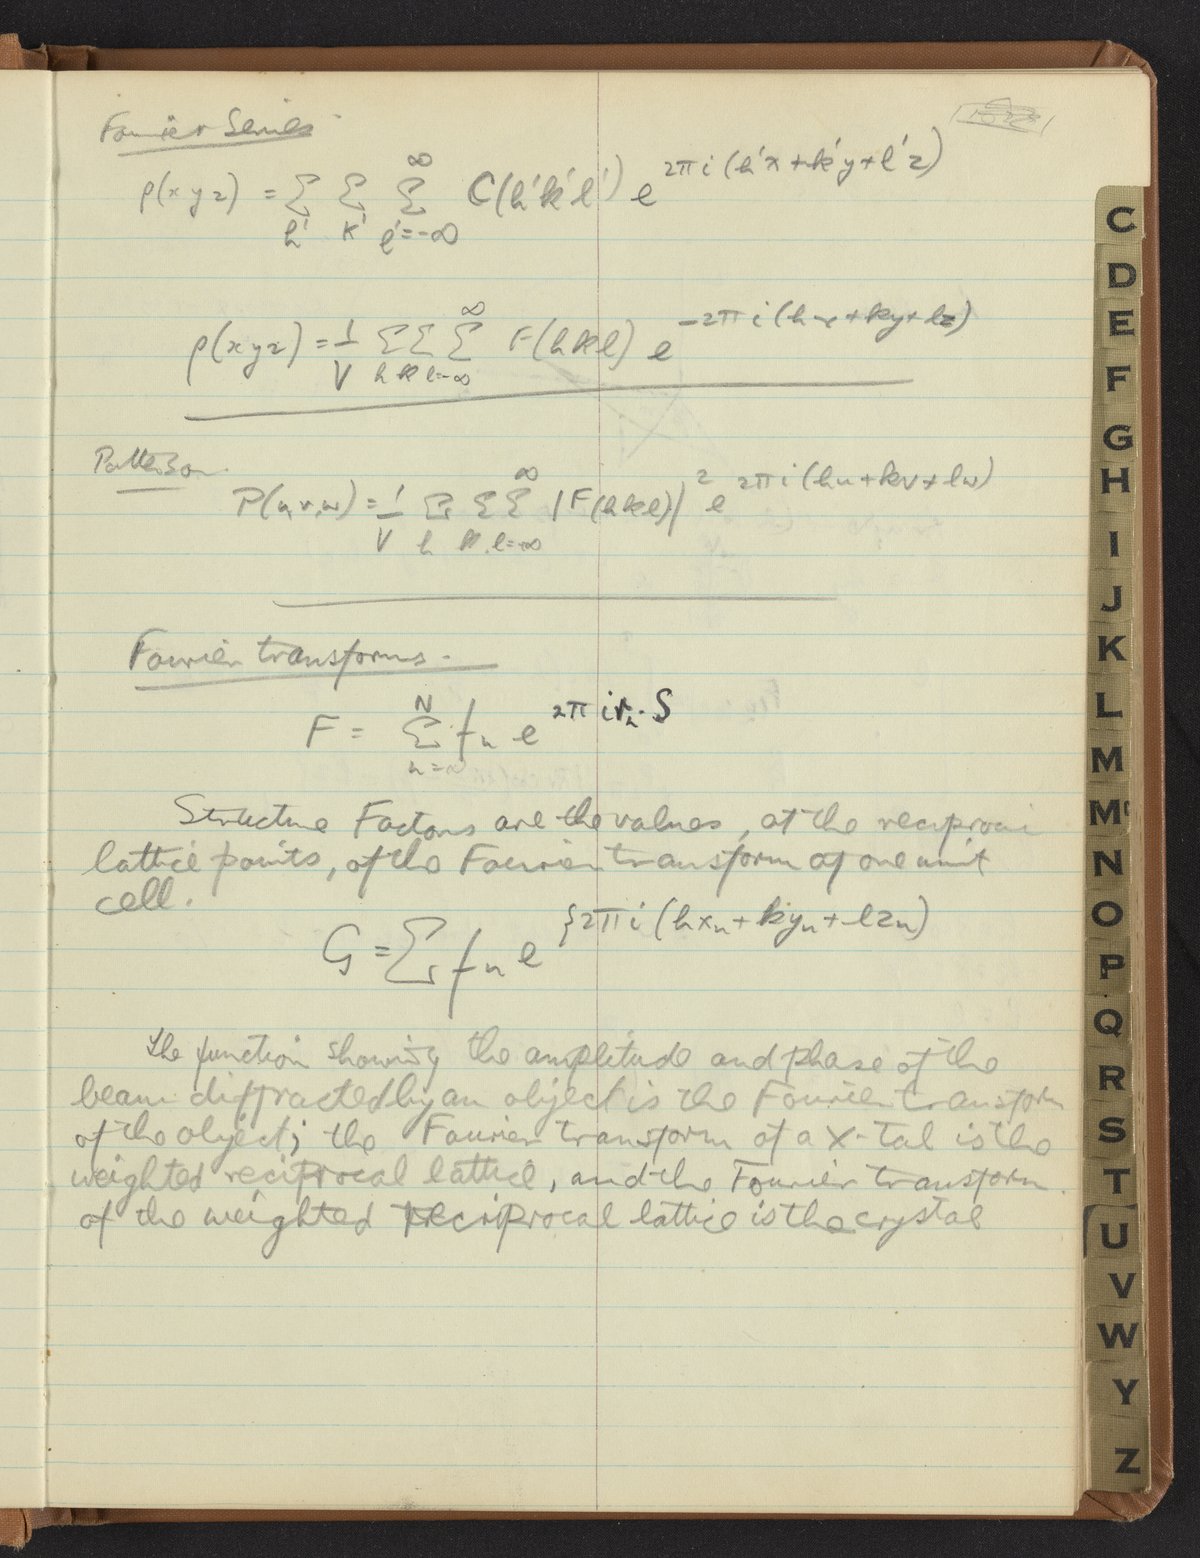 Fourier Series
ρ(xyz) = Σ Σ Σ C(h'k'l') e^2πi(h'x+k'y+l'z)
h' k' l'=-∞ ∞
ρ(xyz) = 1/V Σ Σ Σ F(hkl) e^-2πi(hx+ky+lz)
h k l=-∞ ∞
Patterson
P(u,v,w) = 1/V Σ Σ Σ |F(hkl)|² e^2πi(hu+kv+lw)
h k l=-∞ ∞
Fourier transforms.
F = Σ fn e^2πi rn·S
N n=∞
Structure Factors are the values, at the reciprocal
lattice points, of the Fourier transform of one unit
cell.
G = Σ fn e^{2πi(hxn+kyn+lzn)
The function showing the amplitude and phase of the
beam diffracted by an object is the Fourier transform
of the object; the Fourier transform of a X-tal is the
weighted reciprocal lattice, and the Fourier transform
of the weighted reciprocal lattice is the crystal
C
D
E
F
G
H
I
J
K
L
M
Mc
N
O
P
Q
R
S
T
U
V
W
Y
Z